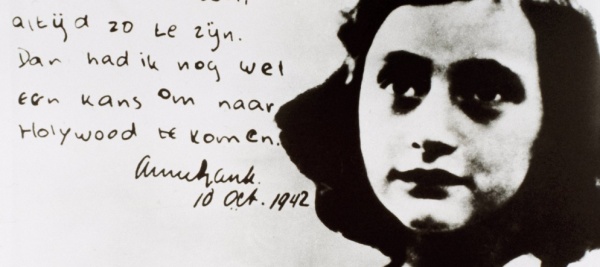 altijd zo te zijn.
Dan had ik nog wel
een kans om naar
Holywood te komen.
AnneFrank.
10 Oct. 1942